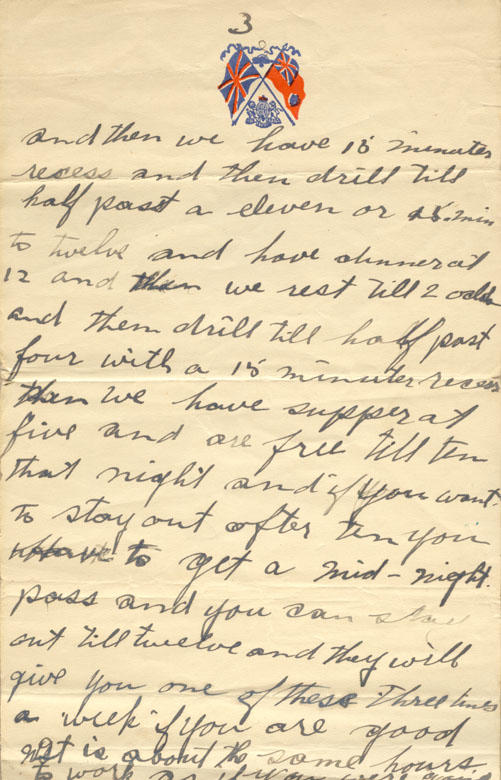 3
and then we have 15 minutes
recess and then drill till
half past a eleven or 15 min
to twelve and have dinner at
12 and then we rest till 2 oclock
and them drill till half past
four with a 15 minutes recess
than we have supper at
five and are free till ten
that night and if you want
to stay out after ten you
have to get a mid-night
pass and you can stay
out till twelve and they will
give you one of these Three times
a week if you are good
it is about the same hours
to work as it